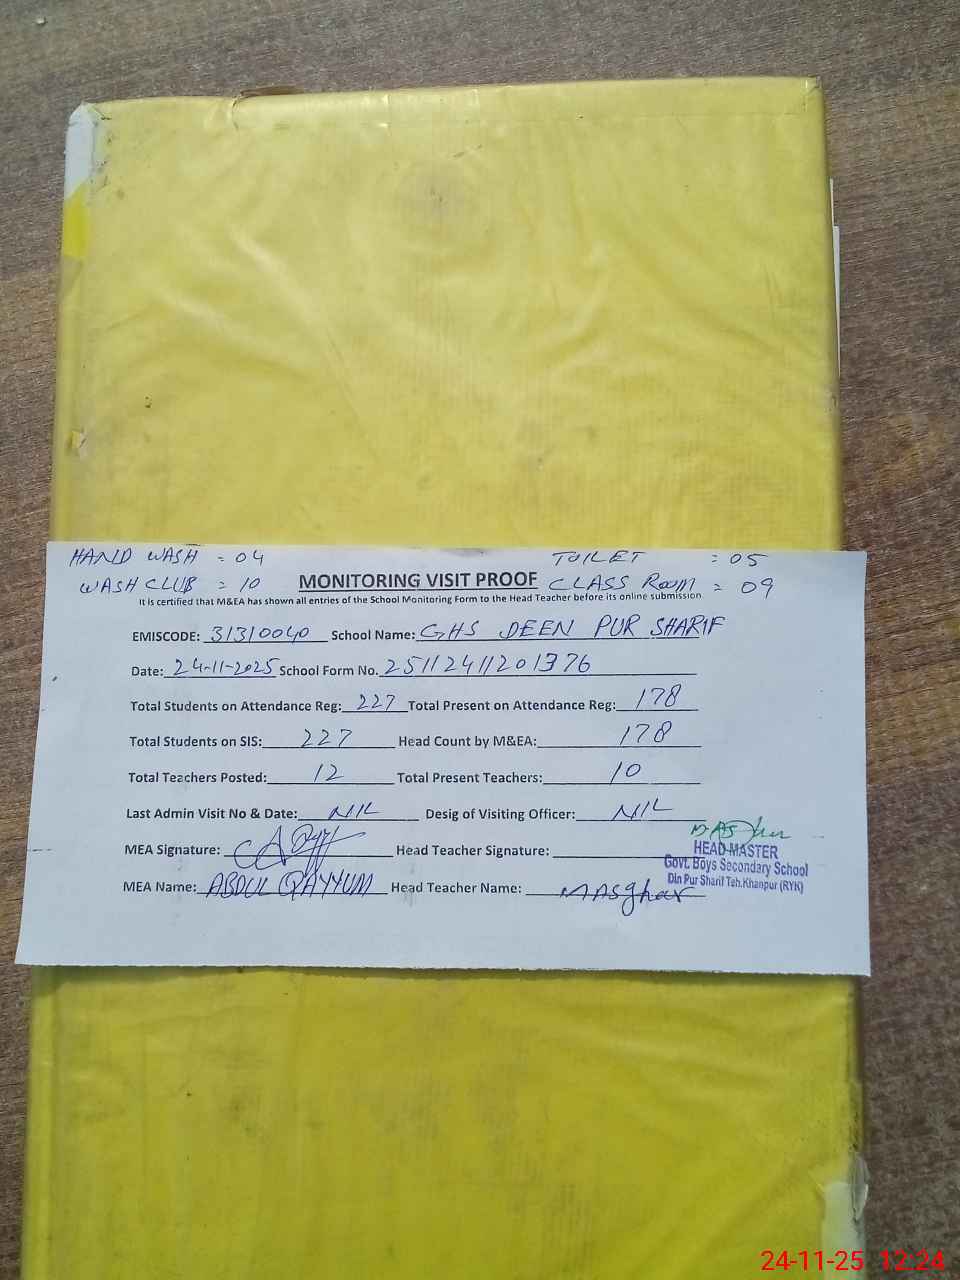 HAND WASH = 04 TOILET = 05
WASH CLUB = 10 MONITORING VISIT PROOF CLASS ROOM = 09
It is certified that M&EA has shown all entries of the School Monitoring Form to the Head Teacher before its online submission.
EMISCODE: 31310040 School Name: GHS DEEN PUR SHARIF
Date: 24-11-2025 School Form No. 25112411201376
Total Students on Attendance Reg: 227 Total Present on Attendance Reg: 178
Total Students on SIS: 227 Head Count by M&EA: 178
Total Teachers Posted: 12 Total Present Teachers: 10
Last Admin Visit No & Date: NIL Desig of Visiting Officer: NIL
MEA Signature: Head Teacher Signature:
HEAD MASTER
Govt. Boys Secondary School
Din Pur Sharif Teh. Khanpur (RYK)
MEA Name: ABDUL QAYYUM Head Teacher Name: M Asghar
24-11-25 12:24